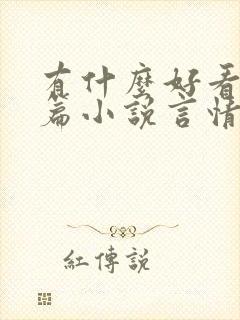 有什麼好看
篇小說言情
紅傳說